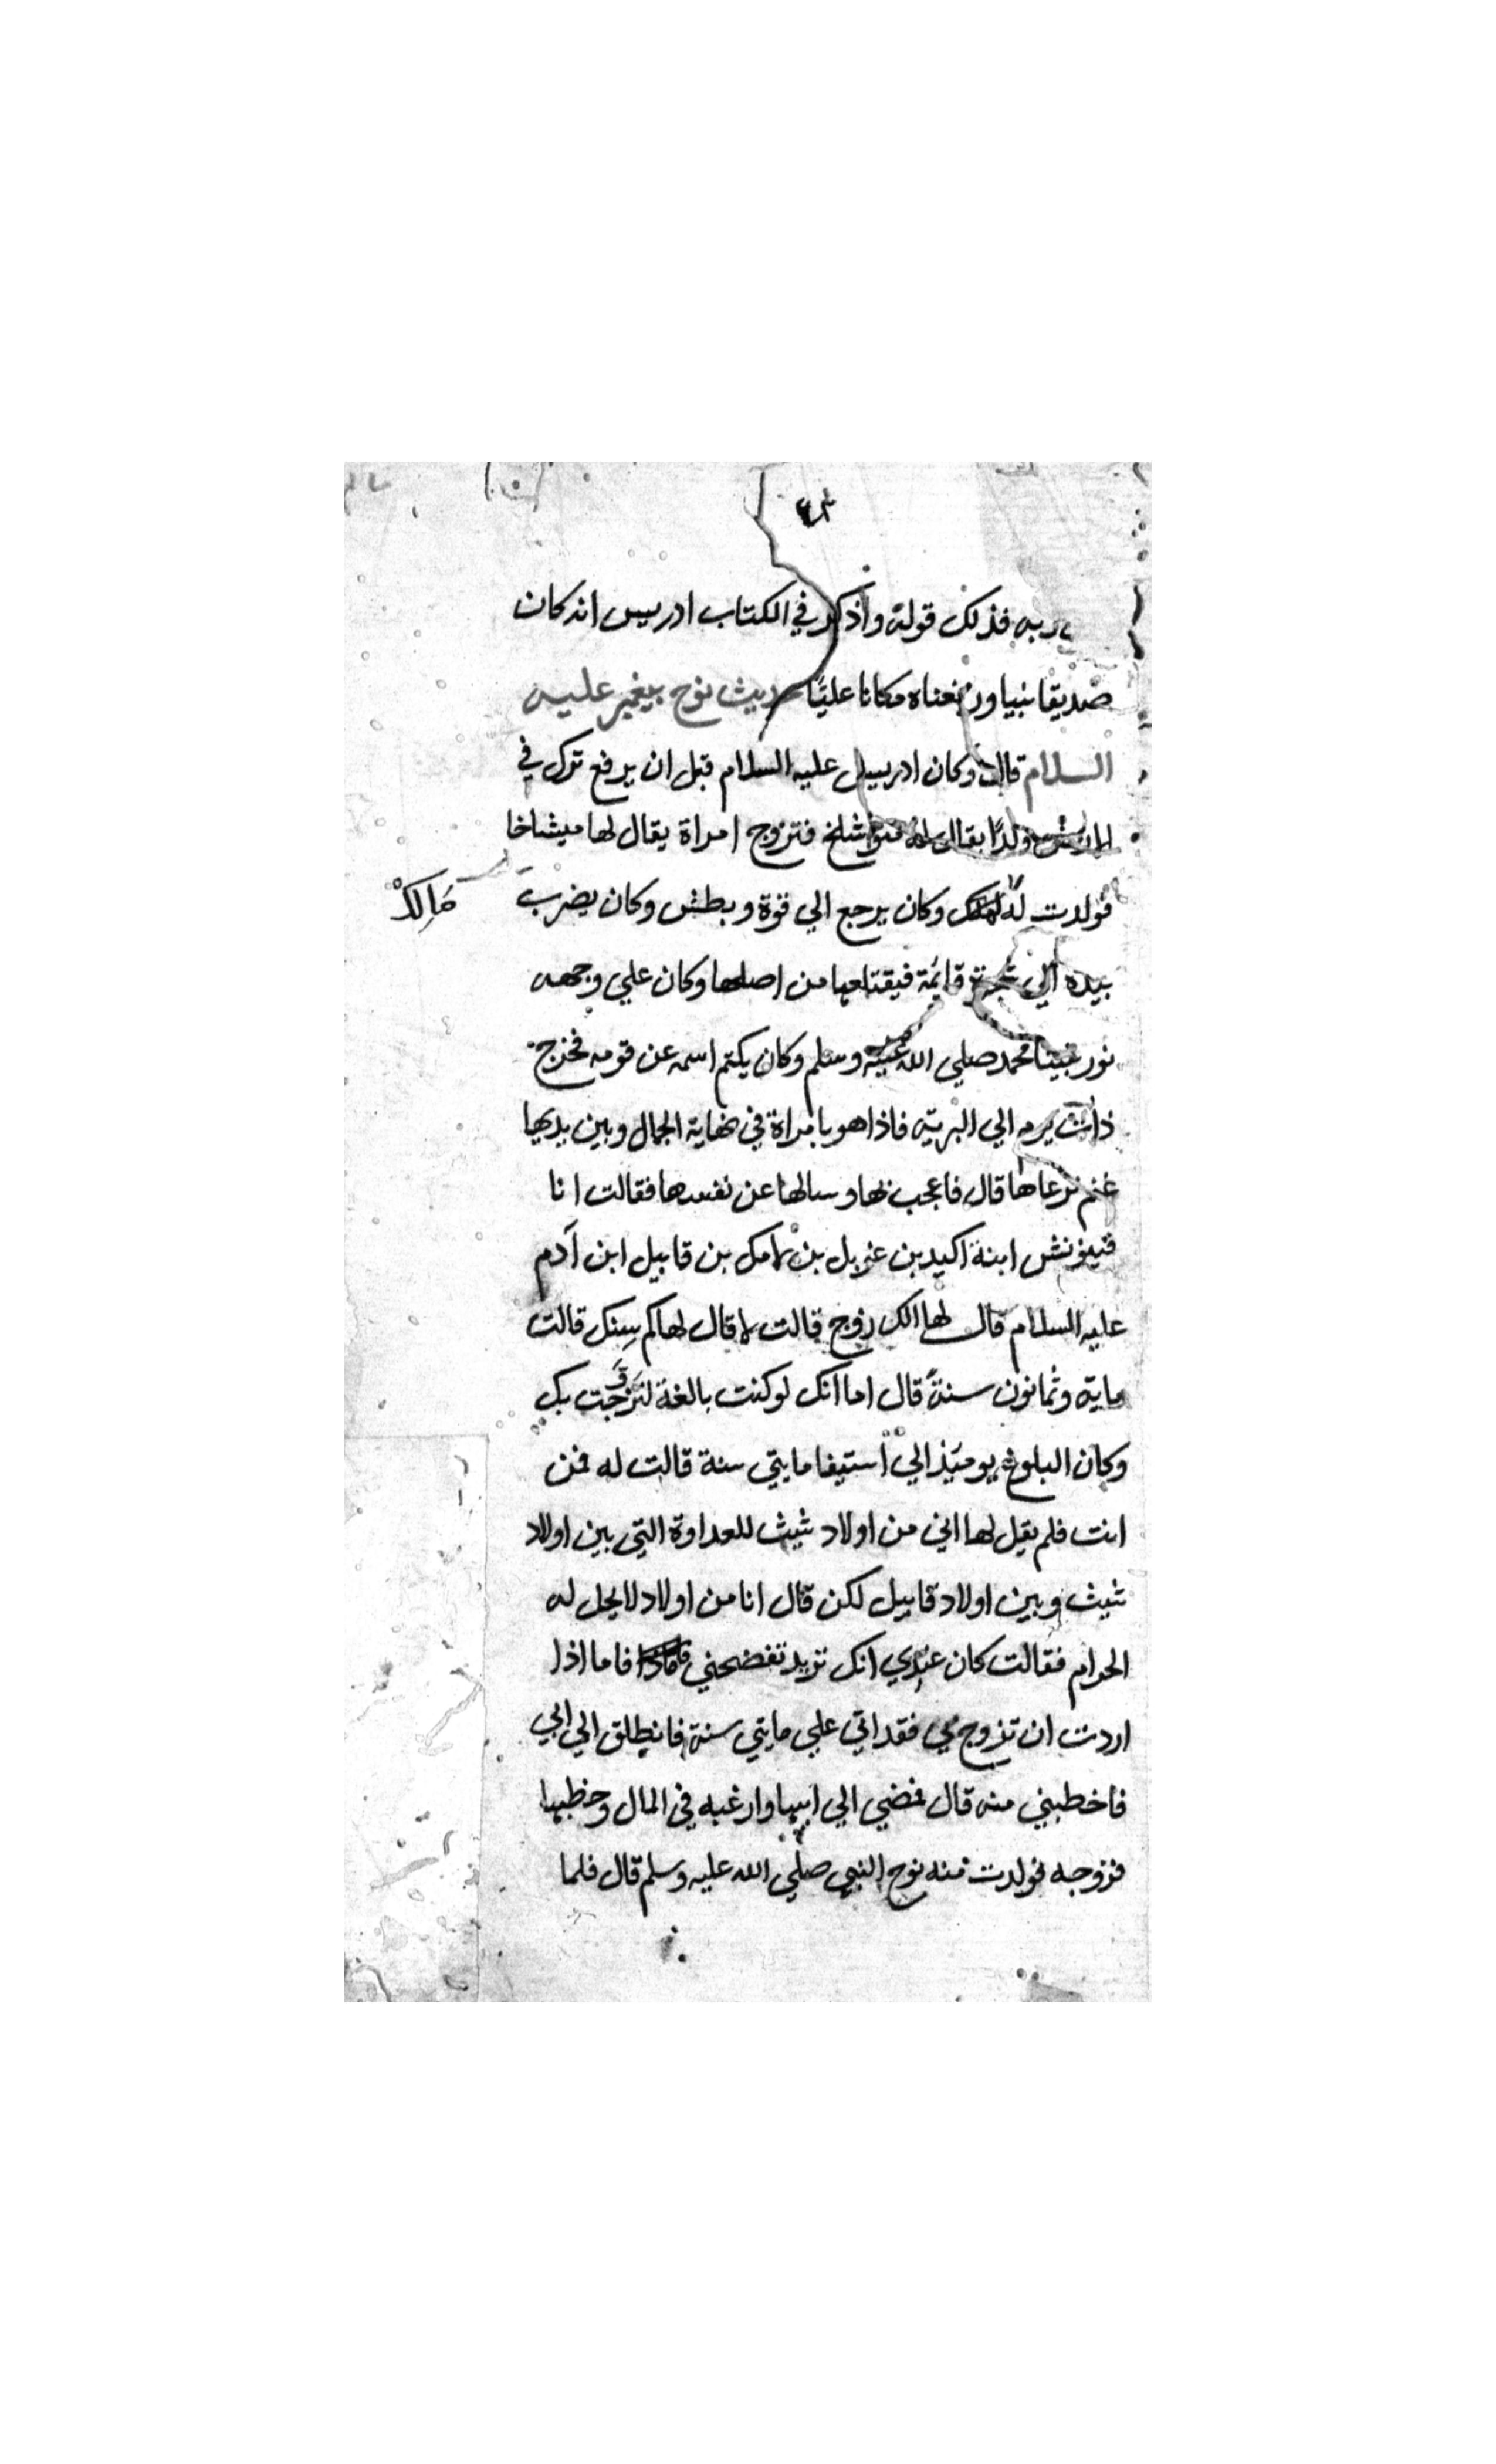 ٤٣
ربه فذلك قوله واذكر في الكتاب ادريس انه كان
صديقا نبيا ورفعناه مكانا عليًا حديث نوح پيغمبر عليه
السلام قال وكان ادريس عليه السلام قبل ان يرفع ترك في
الارض ولدًا يقال له متوشلخ فتزوج امراة يقال لها ميشاخا
فولدت له لمك وكان يرجع الي قوة وبطش وكان يضرب
مَالِكْ
بيده الي شجرة قائمة فيقتلعها من اصلها وكان علي وجهه
نور نبينا محمد صلي الله عليه وسلم وكان يكتم اسمه عن قومه فخرج
ذات يوم الي البريّه فاذا هو بامراة في نهاية الجمال وبين يديها
غنم ترعاها قال فاعجب بها وسالها عن نفسها فقالت انا
ابنة اكيد بن عزيل بن لامك بن قابيل ابن آدم
عليه السلام قال لها الك زوج قالت لا قال لها كم سِنك قالت
ماية وثمانون سنةً قال اما انك لو كنت بالغة لتزوّجت بك
وكان البلوغ يومئذ الي استيفا مايتي سنة قالت له فمن
انت فلم يقل لها اني من اولاد شيث للعداوة التي بين اولاد
شيث وبين اولاد قابيل لكن قال انا من اولاد لا يحل له
الحرام فقالت كان عندي انك تريد تفضحني فاما اذا
اردت ان تزوج بي فقد اتي علي مايتي سنة فانطلق الي ابي
فاخطبني منه قال فمضي الي ابيها وارغبه في المال وخطبها
فزوجه فولدت منه نوح النبي صلي الله عليه وسلم قال فلما